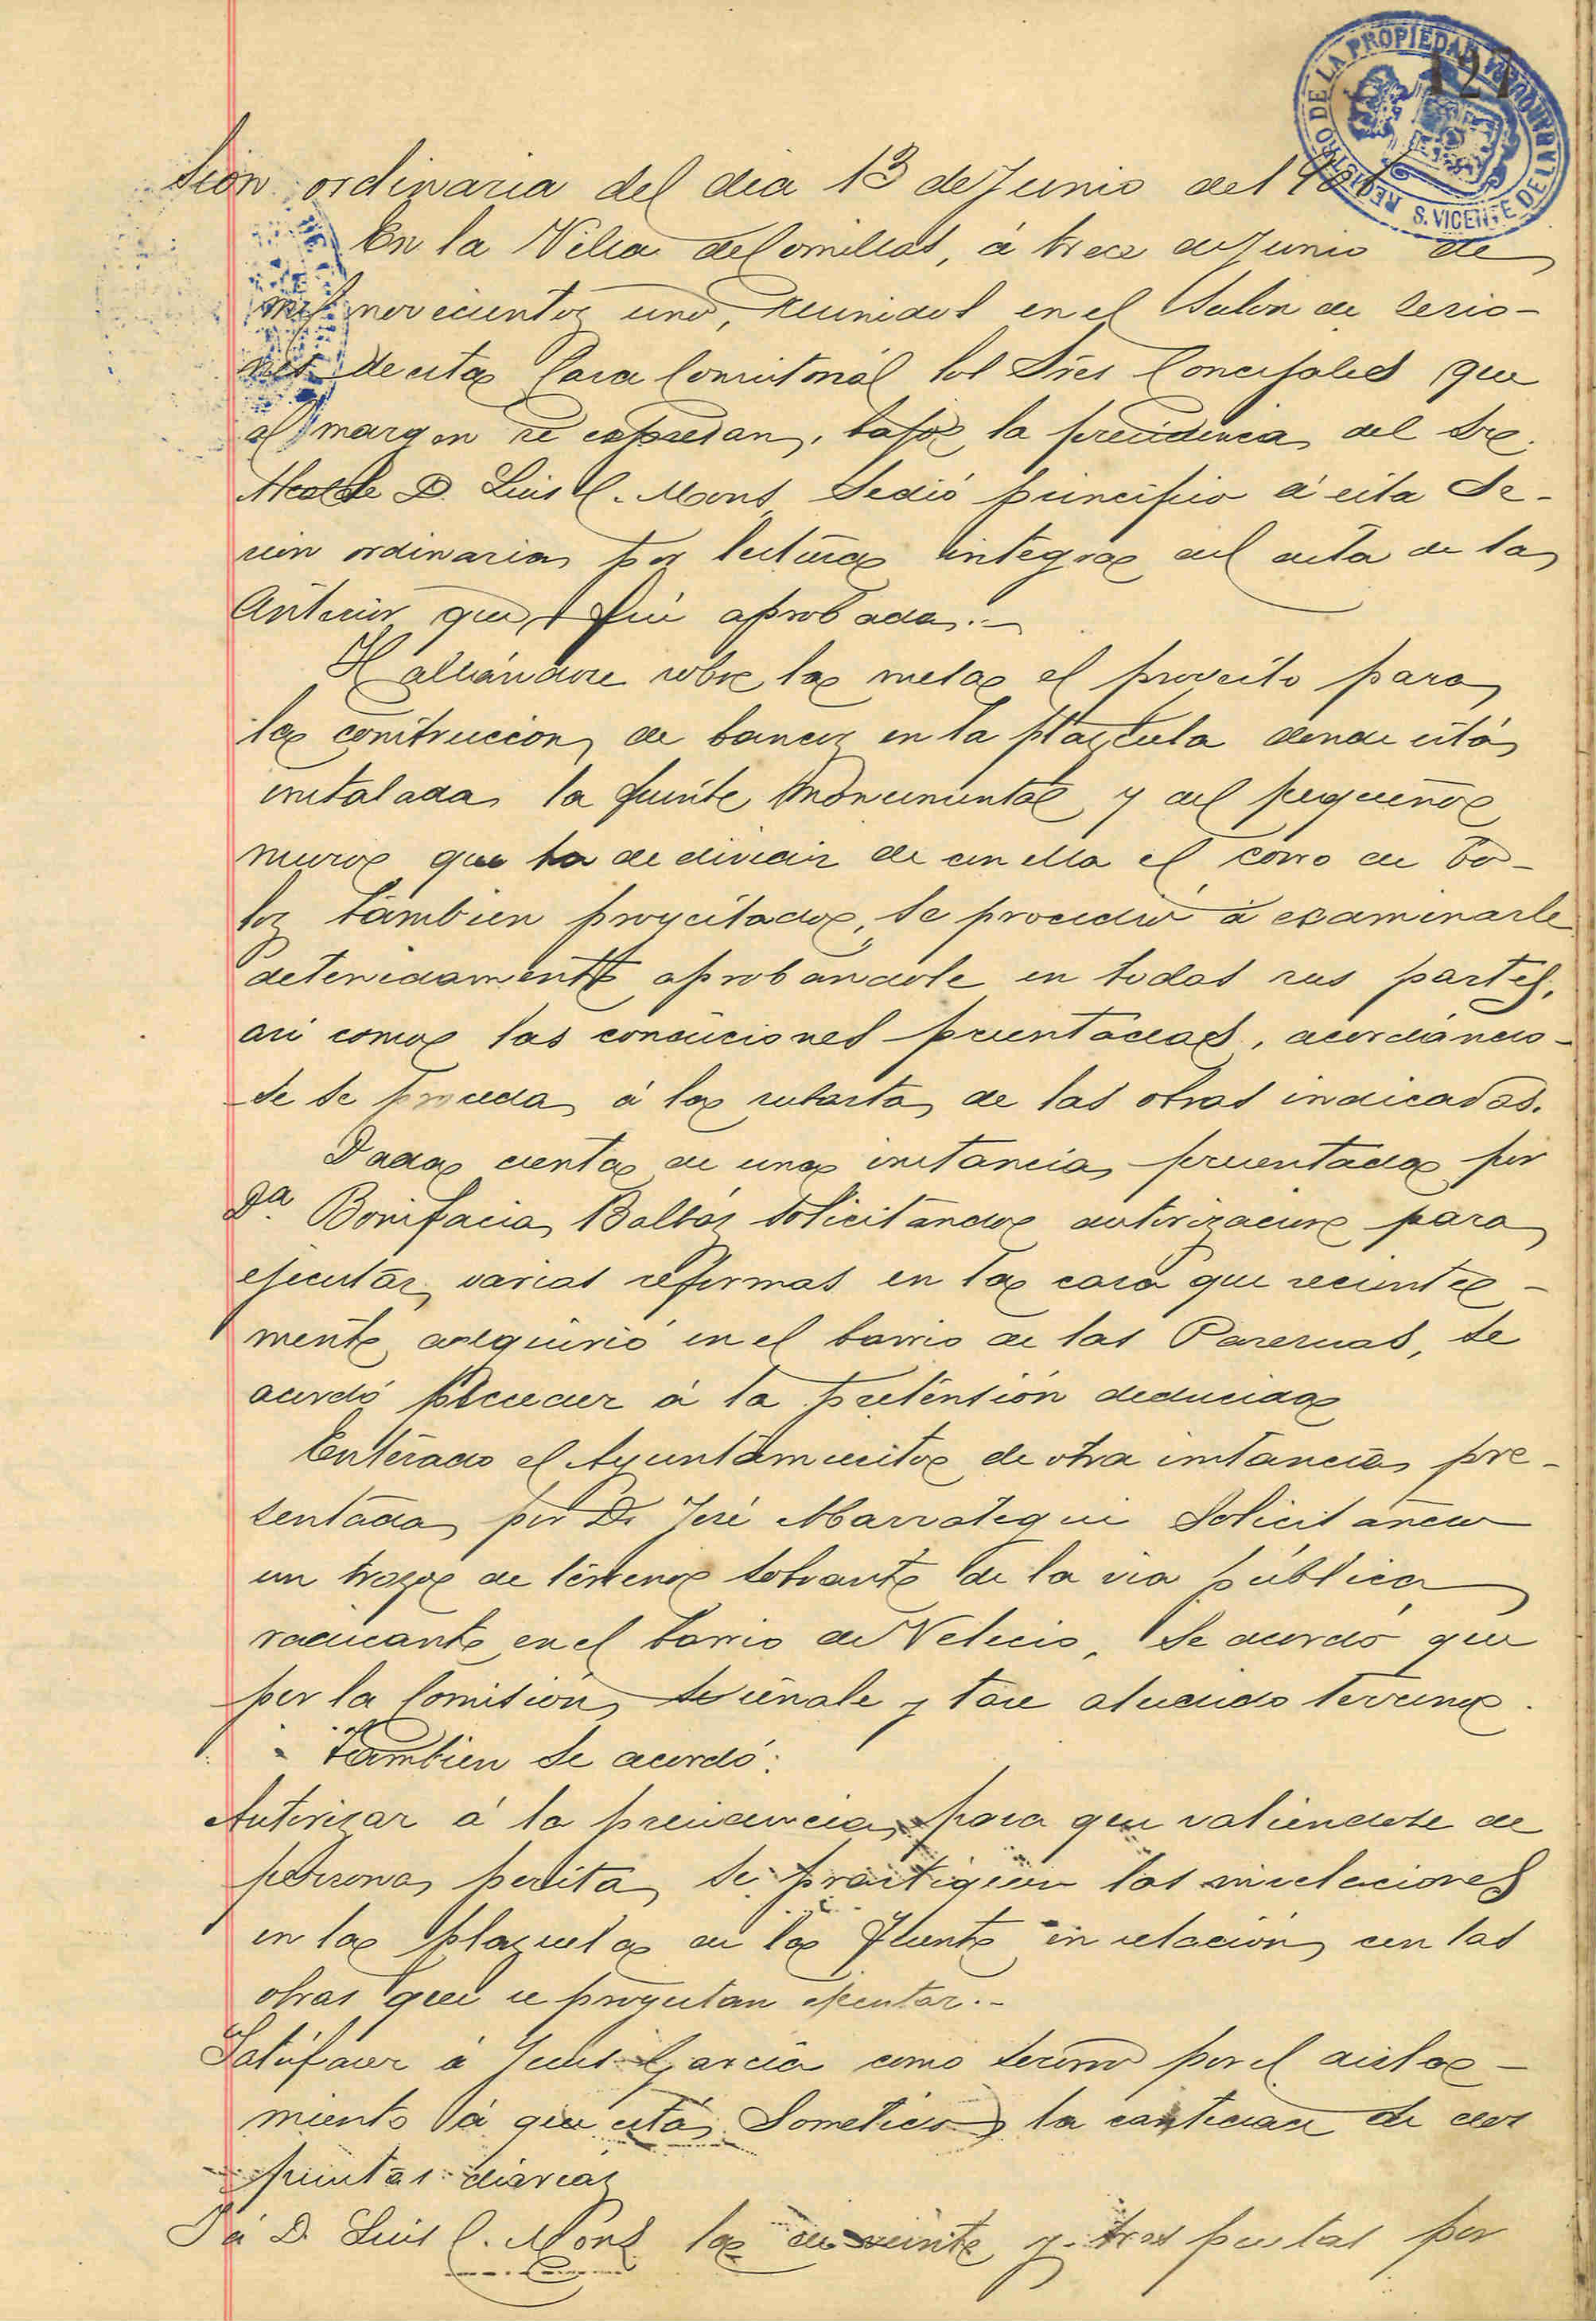 REGISTRO DE LA PROPIEDAD
S. VICENTE DE LA BARQUERA
127
Sión ordinaria del dia 13 de Junio de 1901
En la Villa de Comillas, á trece de Junio de
mil novecientos uno, reunidos en el Salon de sesio-
nes de esta Casa Consistorial los Sres Concejales que
al margen se espresan, bajo la presidencia del Sr.
Alcalde D. Luis C. Mons, se dió principio á esta se-
sion ordinaria por lectura integra del acta de la
Anterior que fué aprobada.-
Hallándose sobre la mesa el proyecto para
la construccion de bancos en la plazuela donde está
instalada la fuente Monumental y del pequeño
muro que ha de dividir de en ella el corro de bo-
los tambien proyectado, se procedio á examinarle
detenidamente aprobandole en todas sus partes,
asi como las condiciones presentadas, acordándo-
se se proceda á la subasta de las obras indicadas.
Dada cuenta de una instancia presentada por
Dª Bonifacia Balbás solicitando autorizacion para
ejecutar varias reformas en la casa que reciente-
mente adquirió en el barrio de las Pareruas, se
acordó acceder á la pretensión deducida
Enterado el Ayuntamiento de otra instancia pre-
sentada por D. José Marrategui Solicitando
un trozo de terreno sobrante de la via pública
radicante en el barrio de Velecio, se acordó que
por la Comisión se señale y tase aludido terreno.
Tambien se acordó:
Autorizar á la presidencia para que valiendose de
persona perita se practiquen las nivelaciones
en la plazuela de la Fuente en relación con las
obras que se proyectan ejecutar.-
Satisfacer á Jesus Garcia como sereno por el aisla-
miento á que está Sometido la cantidad de dos
pesetas diarias
Y á D. Luis C. Mons la de veinte y tres pesetas por